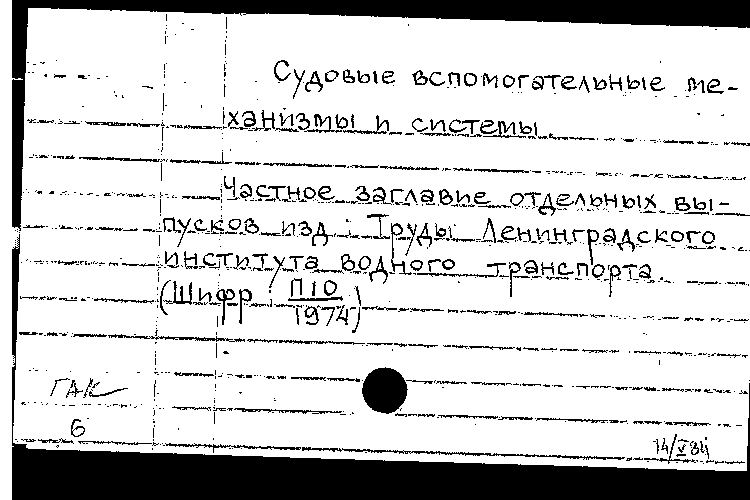 Судовые вспомогательные ме-
ханизмы и системы.
Частное заглавие отдельных вы-
пусков изд: Труды Ленинградского
института водного транспорта.
(Шифр: П10
1974)
ГАК
6
14/V 84